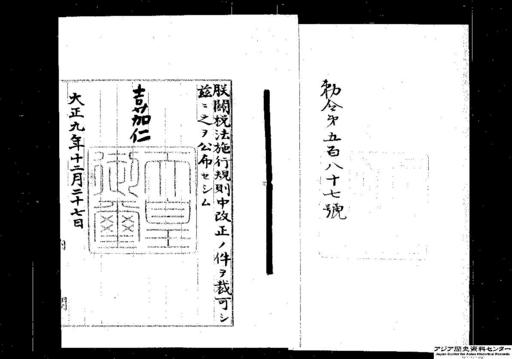 勅令第五百八十七號
朕關税法施行規則中改正ノ件ヲ裁可シ
茲ニ之ヲ公布セシム
嘉仁
天皇御璽
大正九年十二月二十七日
内 閣
アジア歴史資料センター
Japan Center for Asian Historical Records